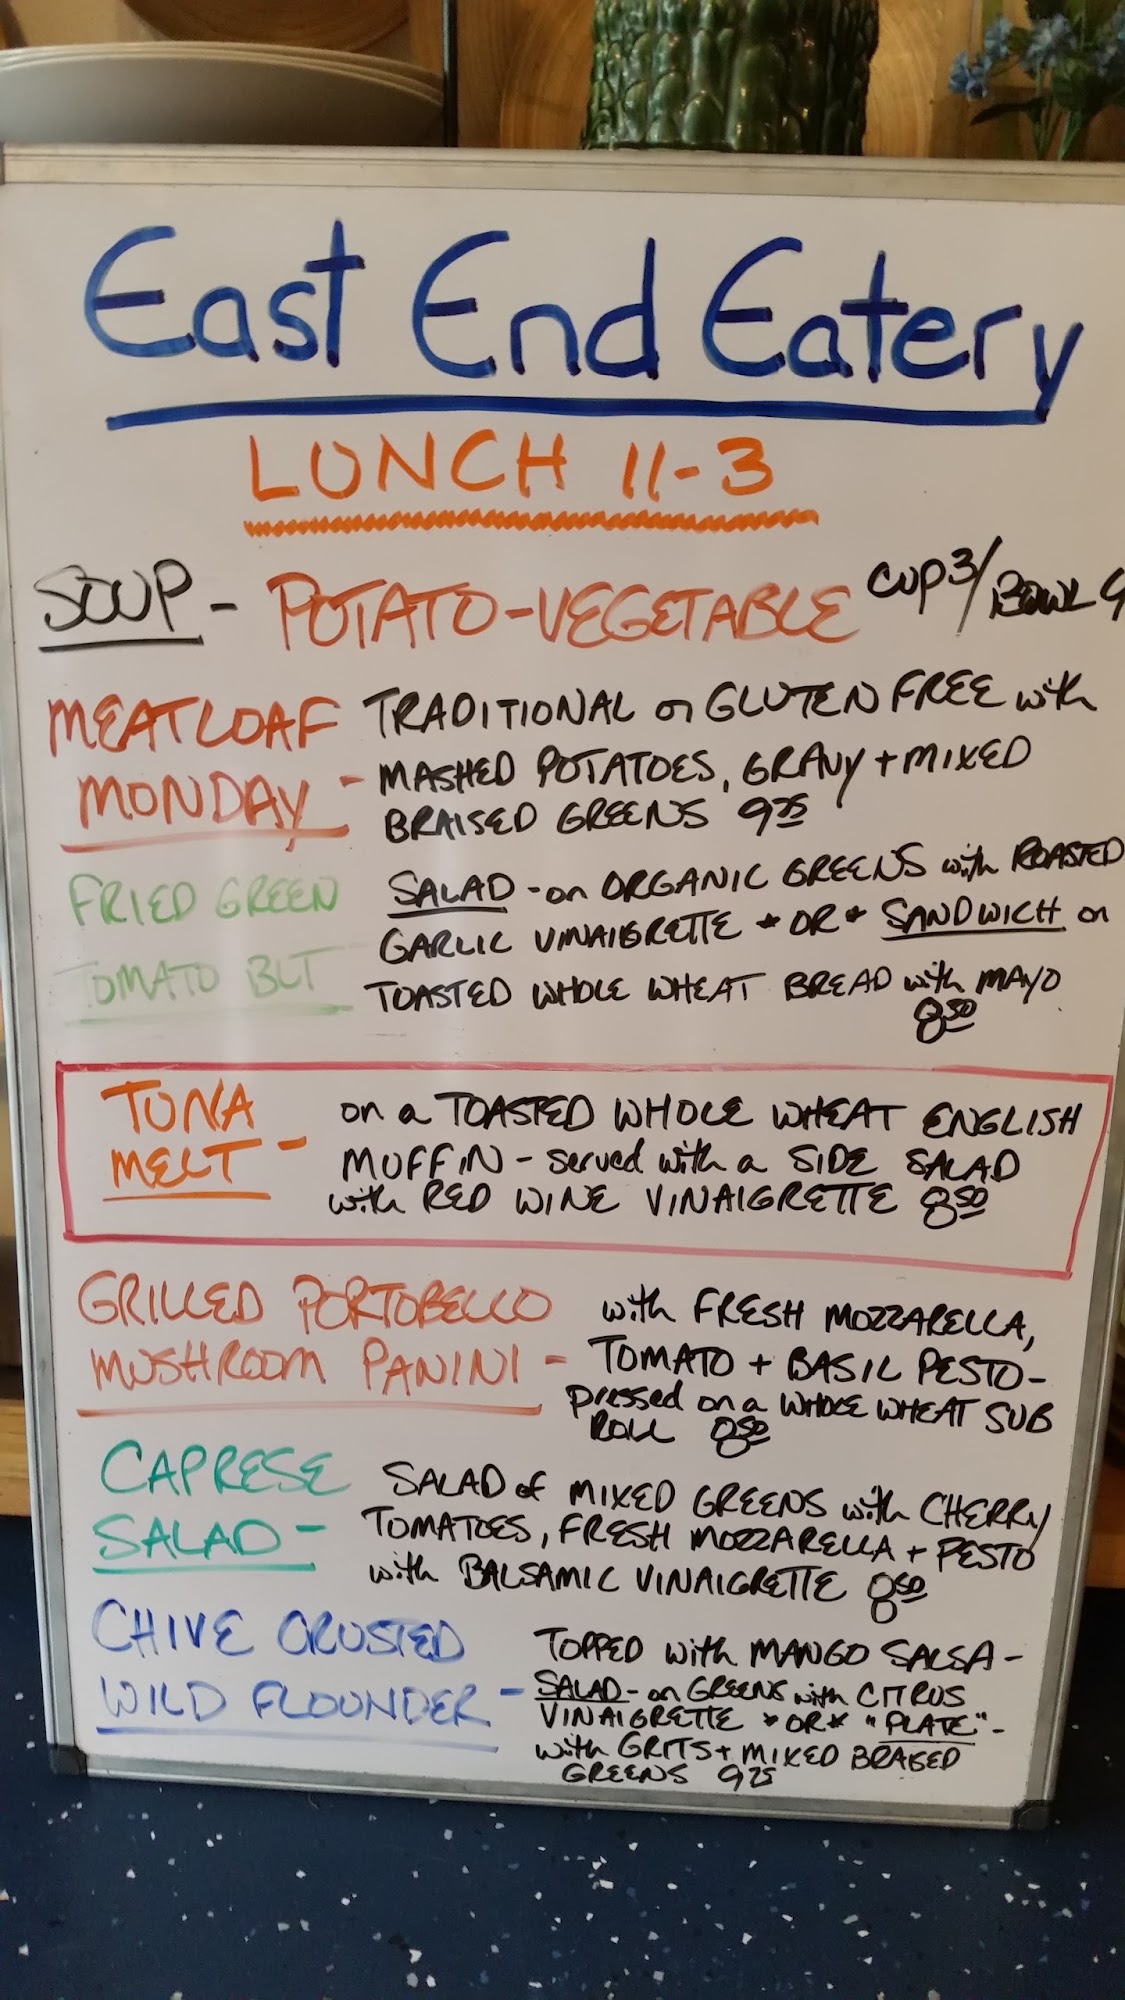 East End Eatery
LUNCH 11-3
SOUP - POTATO-VEGETABLE CUP 3/BOWL
MEATLOAF MONDAY - TRADITIONAL or GLUTEN FREE with
MASHED POTATOES, GRAVY + MIXED
BRAISED GREENS 9 25
FRIED GREEN TOMATO BLT SALAD - on ORGANIC GREENS with ROASTED
GARLIC VINAIGRETTE * OR * SANDWICH on
TOASTED WHOLE WHEAT BREAD with MAYO
8 50
TUNA MELT - on a TOASTED WHOLE WHEAT ENGLISH
MUFFIN - served with a SIDE SALAD
with RED WINE VINAIGRETTE 8 50
GRILLED PORTOBELLO
MUSHROOM PANINI - with FRESH MOZZARELLA,
TOMATO + BASIL PESTO -
pressed on a WHOLE WHEAT SUB
ROLL 8 50
CAPRESE SALAD - SALAD of MIXED GREENS with CHERRY
TOMATOES, FRESH MOZZARELLA + PESTO
with BALSAMIC VINAIGRETTE 8 50
CHIVE CRUSTED
WILD FLOUNDER - TOPPED with MANGO SALSA -
SALAD - on GREENS with CITRUS
VINAIGRETTE * OR * "PLATE" -
with GRITS + MIXED BRAISED
GREENS 9 25